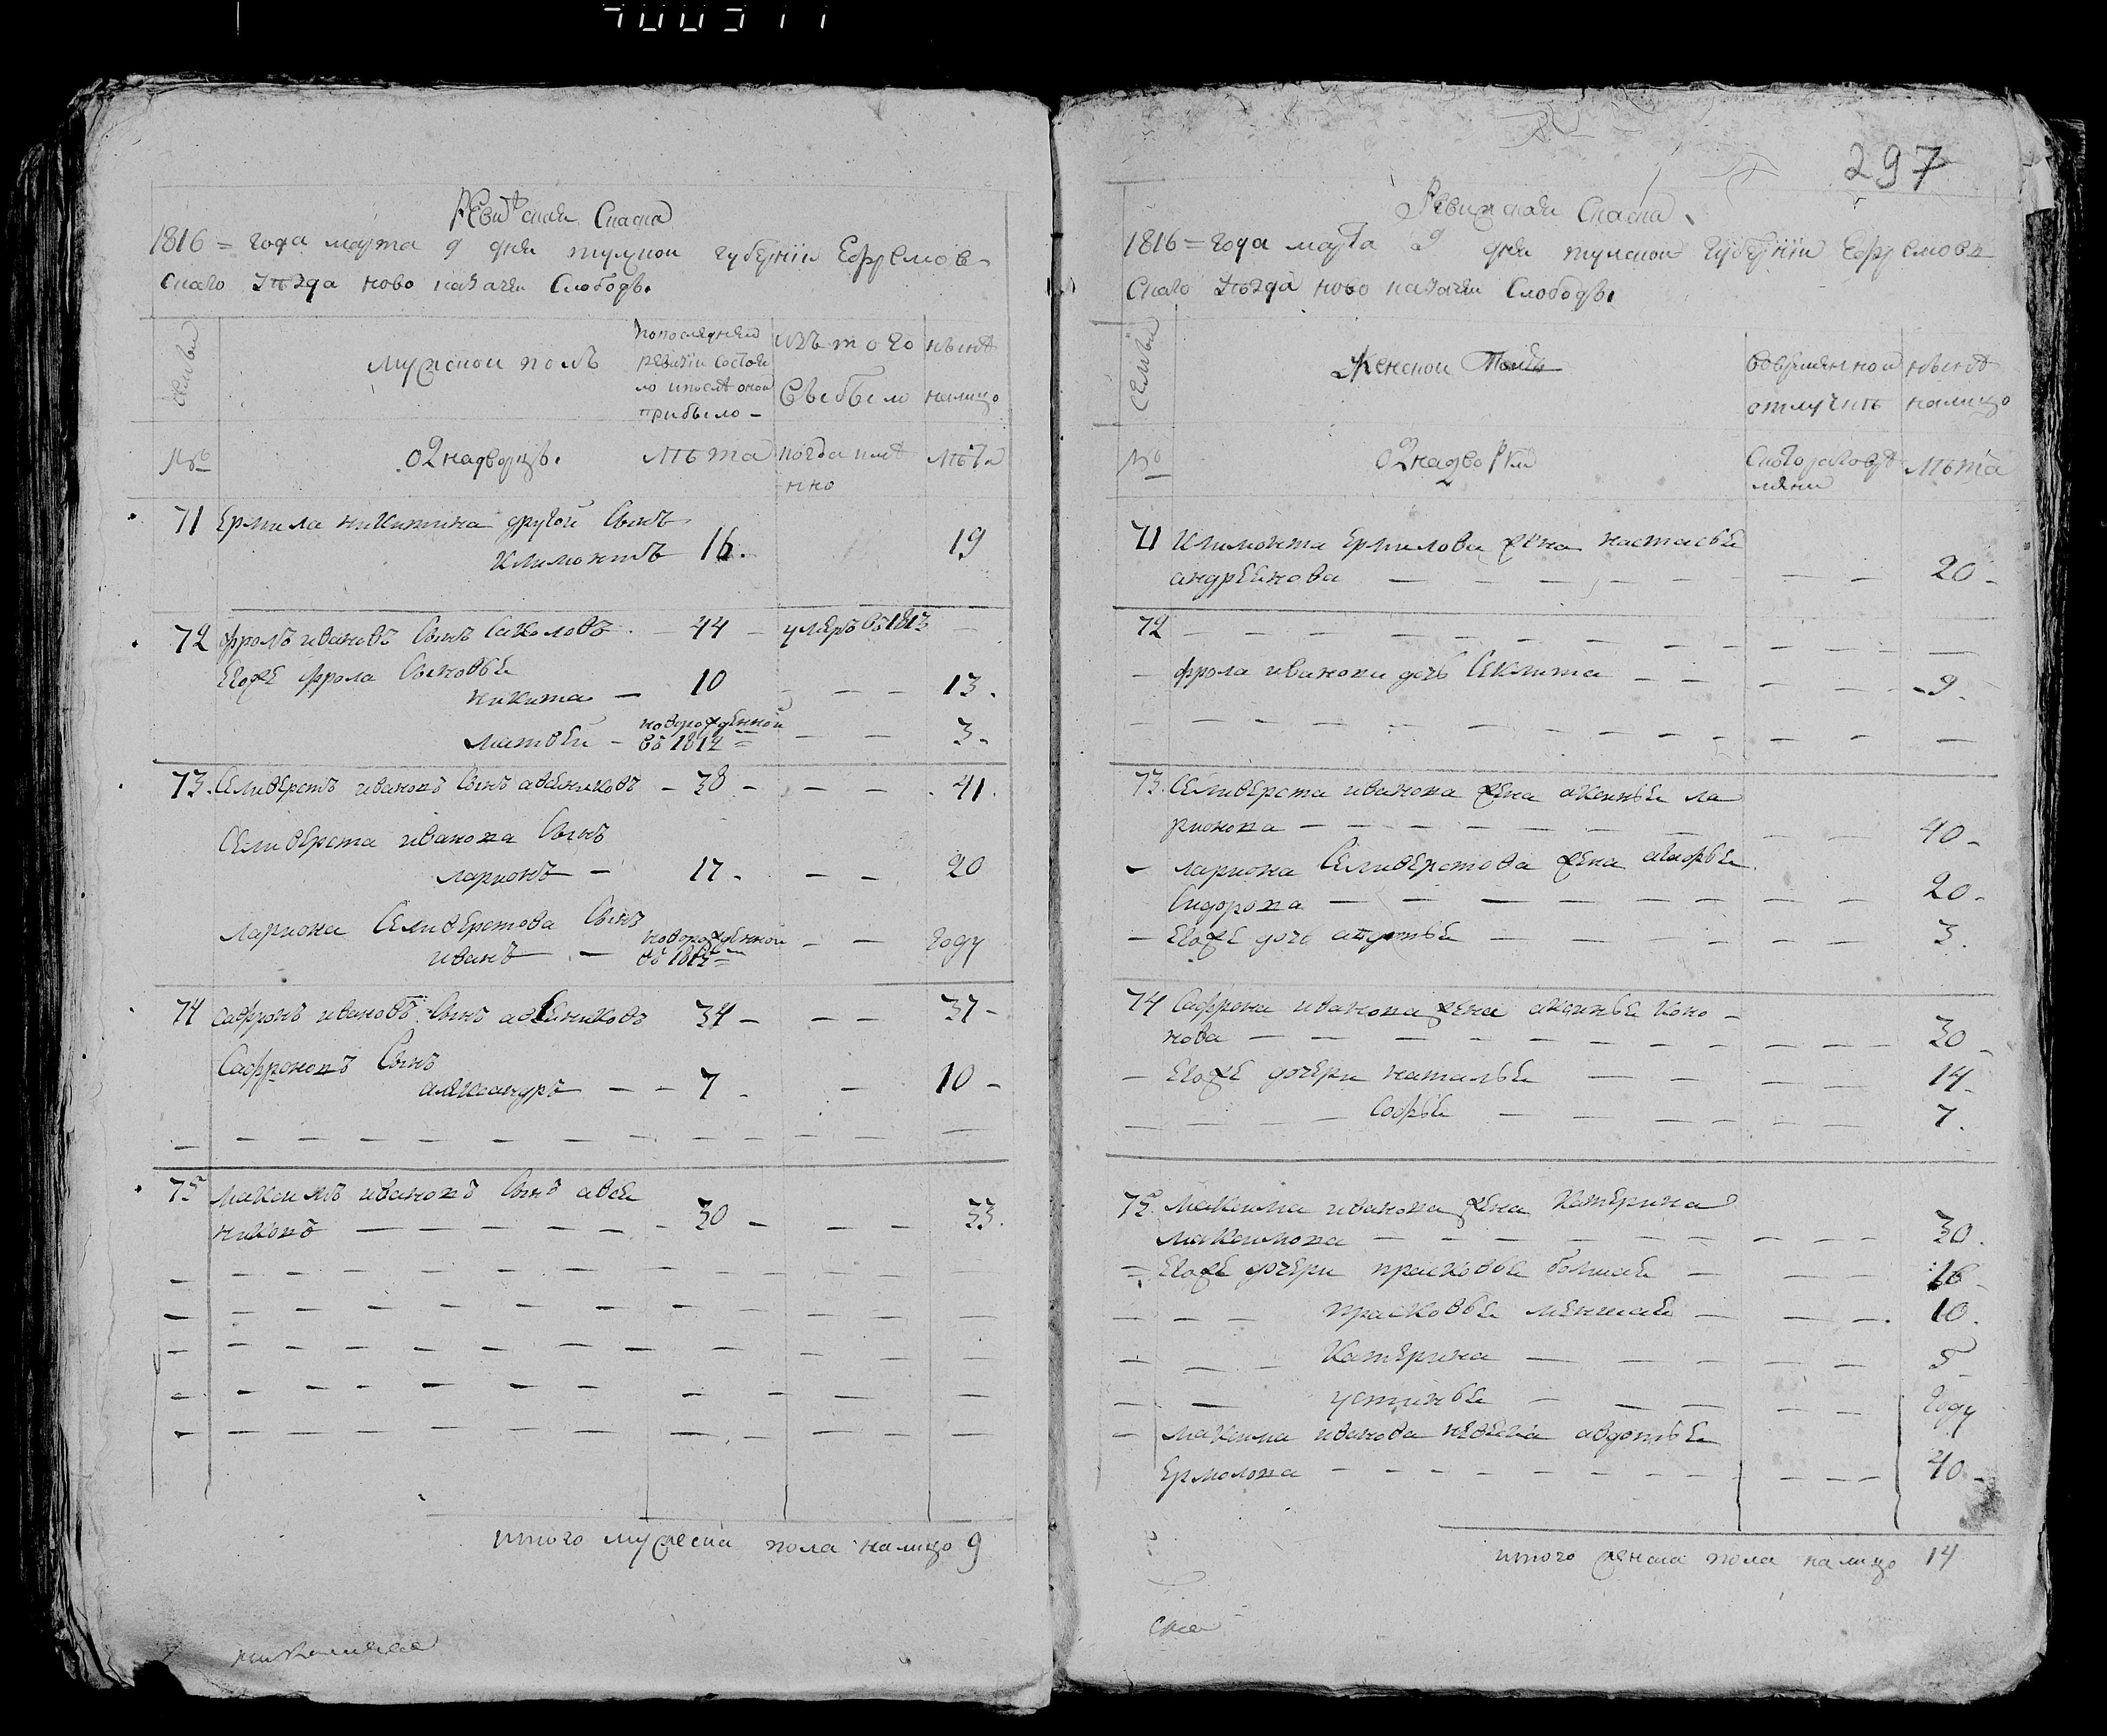 Ревизская Сказка
1816 = года марта 9 дня тулской губернии Ефремов-
скаго уѣзда ново казачей Слободы.
семьи
мужской полъ
попоследней
ревизіи состоя
ло ипослѣ оной
прибыло -
изъ того
выбыло
нынѣ
налицо
№
однадворцы.
лѣта
когда имѣ
нно
лѣта
71 Ермила никитина другой Сынъ
климонтъ 16. 19
72 фролъ ивановъ Сынъ Саколовъ. - 44 - умеръ въ 1813 -
Егоже фрола Сыновья
никита - 10 - - - 13.
матвей - новорожденной
въ 1812 = - - 3.
73. Селиверстъ ивановъ Сынъ авсениковъ - 38 - - - 41.
Селиверста иванова Сынъ
ларионъ - 17. - - 20
лариона Селиверстова Сынъ
иванъ - новорожденной - - году
74 сафронъ ивановъ Сынъ авсениковъ 34 - - - 37 -
Сафроновъ Сынъ
александръ - - 7 - - 10 -
75 максимъ ивановъ Сынъ авсе
никовъ - 30 - - - 33.
итого мужеска пола налицо 9
297
Ревизская Сказка.
1816 = года марта 9 дня тулской губернии Ефремов
скаго уѣзда ново казачей Слободы.
семьи
Женской полъ
вовременной
отлучкѣ
нынѣ
налицо
№
однадворки
Скотораго вре
мени
лѣта
71 климонта Ермилова жена настасья
андреинова - - - - - 20 -
72 - - - - - -
- фрола иванова дочь Секлита - - - - - 9.
73. Селиверста иванова жена аксинья ла
рионова - - - - - 40 -
- лариона Селиверстова жена агафья
Сидорова - - - - - 20 -
- Егоже дочь авдотья - - - - 3.
74 Сафрона иванова жена аксинья коно -
нова - - - - - 30 -
- Егоже дочери наталья - - - - 14 -
- - - - Софья - - - - 7.
75. максима иванова жена катерина
максимова - - - - - 30.
= Егоже дочери прасковья болшая - - - 16 -
- - - прасковья меншая - - - 10.
- - - катерина - - - - 5
- - устинья - - - - году
- максима иванова невѣска авдотья
Ермолова - - - - - 40 -
итого женска пола налицо 14